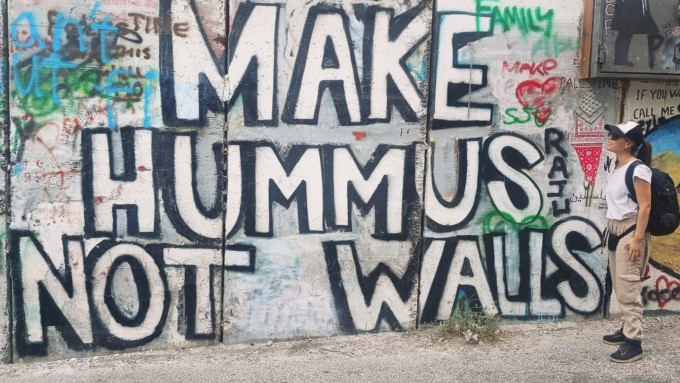 MAKE
HUMMUS
NOT WALLS
FAMILY
TIME
MAKE
PALESTINE
RAJU
IF YOU
CALL ME